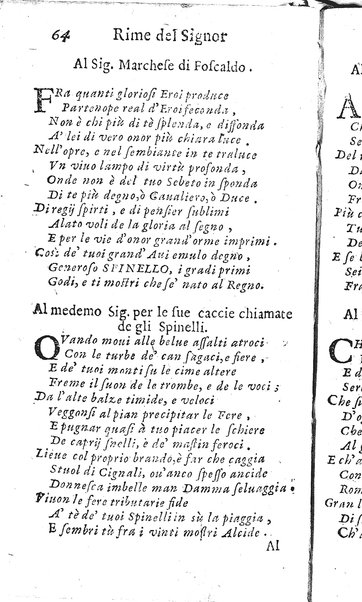 64 Rime del Signor
Al Sig. Marchese di Foscaldo.
FRa quanti gloriosi Eroi produce
Partenope real d'Eroi feconda,
Non è chi più di tè splenda, e diffonda
A' lei di vero onor più chiara luce.
Nell'opre, e nel sembiante in te traluce
Vn viuo lampo di virtù profonda,
Onde non è del tuo Sebeto in sponda
Di te più degno, ò Caualiero, ò Duce.
Di regij spirti, e di pensier sublimi
Alato voli de la gloria al segno,
E per le vie d'onor grand'orme imprimi.
Così de' tuoi grand'Aui emulo degno,
Generoso SPINELLO, i gradi primi
Godi, e ti mostri che se' nato al Regno.
Al medemo Sig. per le sue caccie chiamate
de gli Spinelli.
QVando moui alle belue assalti atroci
Con le turbe de' can sagaci, e fiere,
E de' tuoi monti su le cime altere
Freme il suon de le trombe, e de le voci;
Da l'alte balze timide, e veloci
Veggonsi al pian precipitar le Fere,
E pugnar quasi à tuo piacer le schiere
De caprij snelli, e de' mastin feroci.
Lieue col proprio brando, è far che caggia
Stuol di Cignali, ou'anco spesso ancide
Donnesca imbelle man Damma seluaggia.
Viuon le fere tributarie fide
A' tè de' tuoi Spinelli in sù la piaggia,
E sembri tù fra i vinti mostri Alcide.
Al